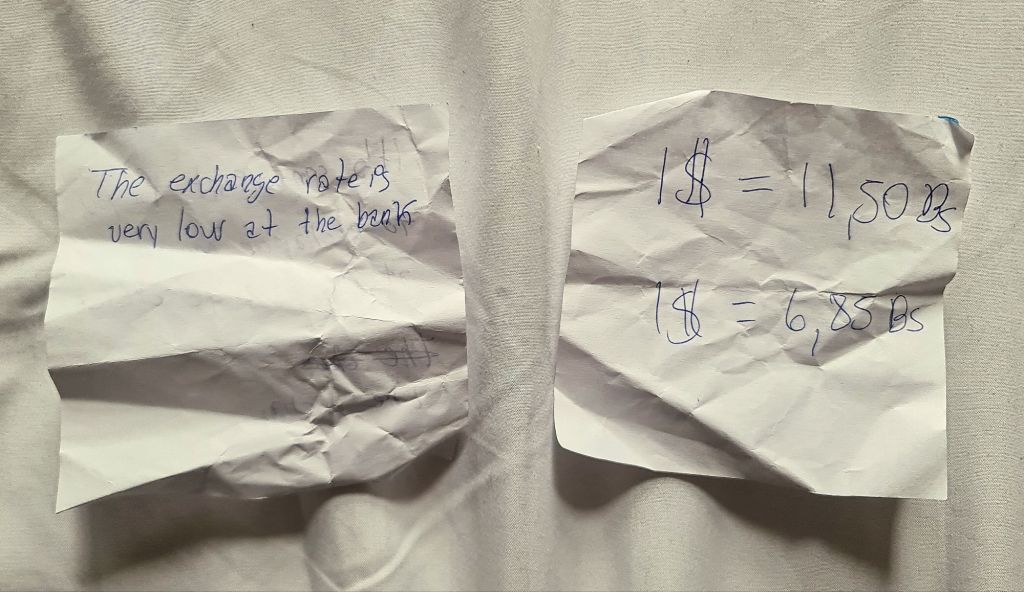 The exchange rate is
very low at the bank
1$ = 11,50 Bs
1$ = 6,85 Bs